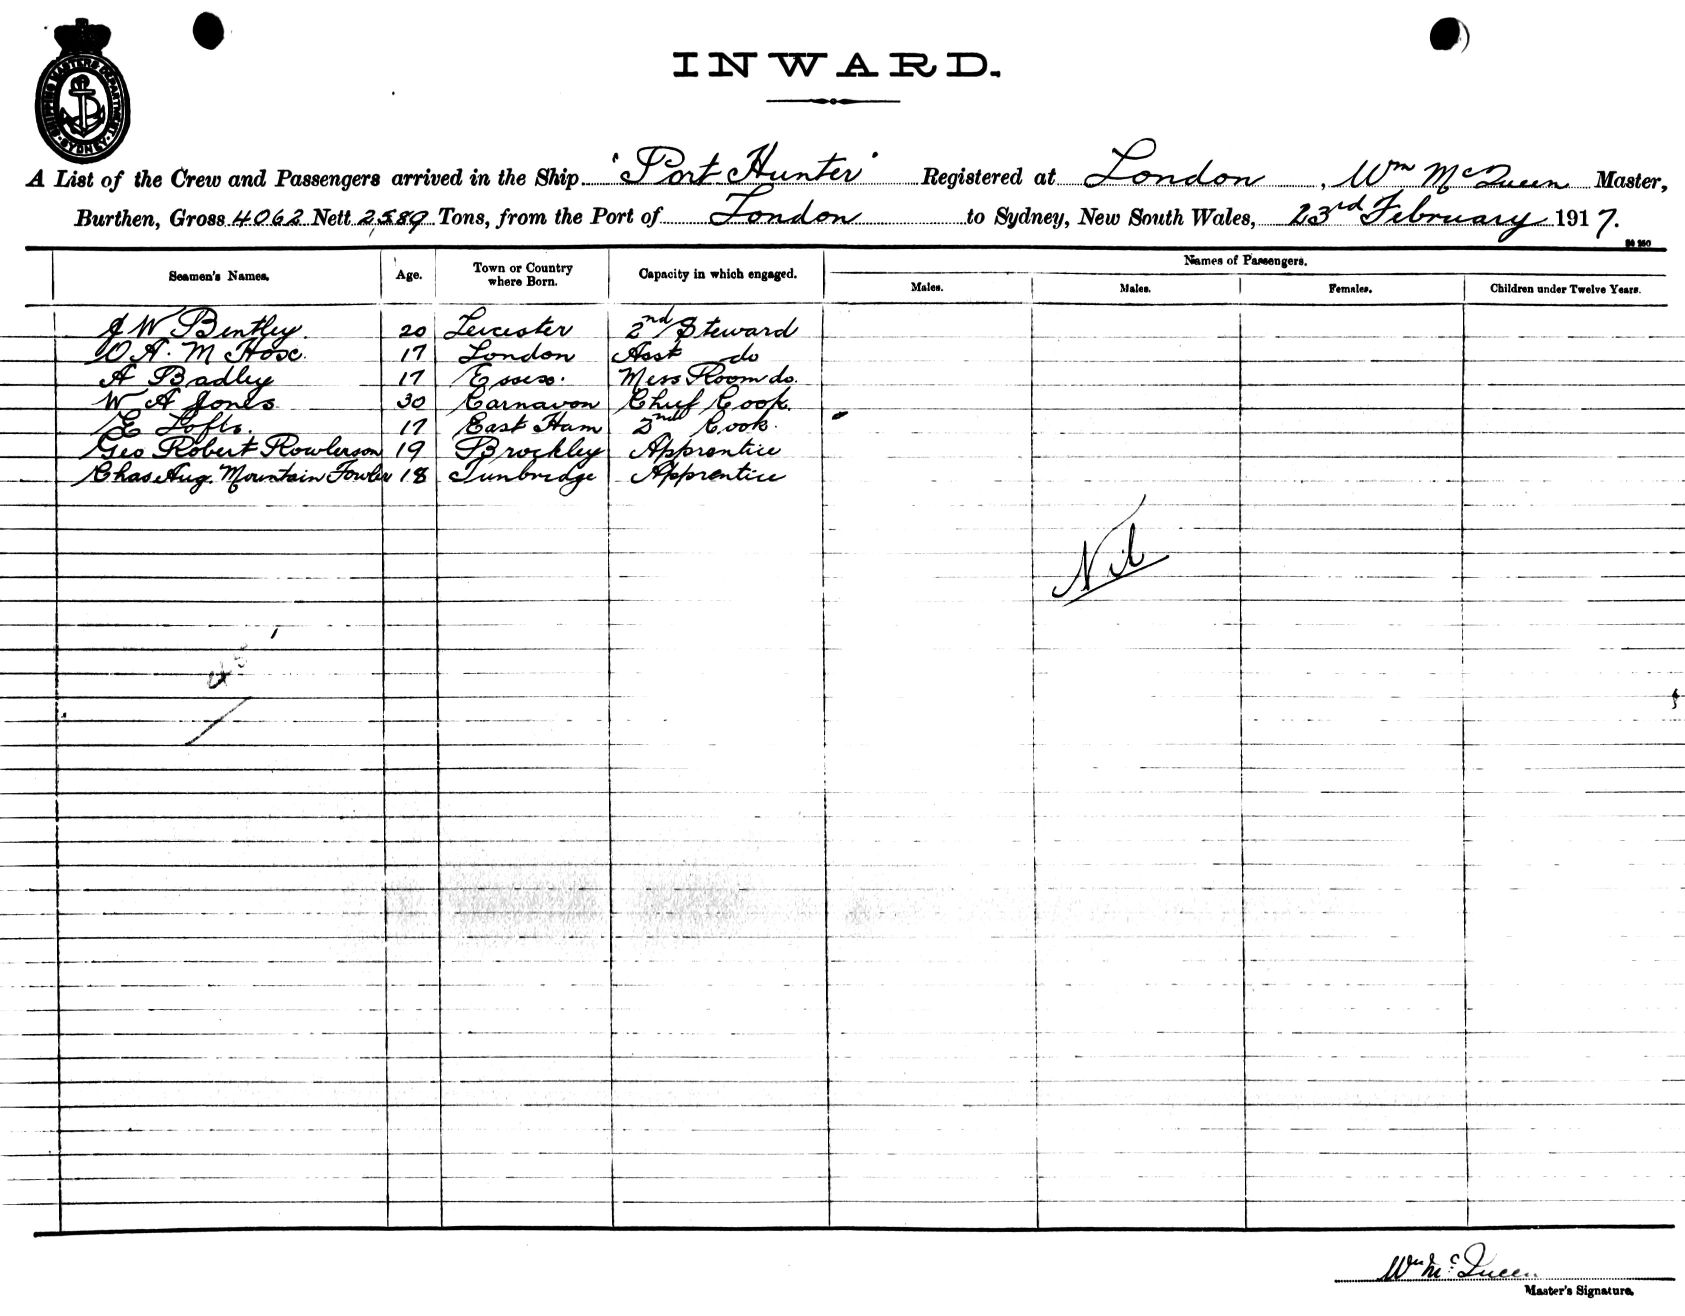 SHIPPING MASTERS DEPARTMENT SYDNEY
INWARD.
A List of the Crew and Passengers arrived in the Ship 'Port Hunter' Registered at London, Wm McQueen Master,
Burthen, Gross 4062 Nett 2,589 Tons, from the Port of London to Sydney, New South Wales, 23rd February 1917.
Seamen's Names. Age. Town or Country where Born. Capacity in which engaged. Names of Passengers.
Males. Males. Females. Children under Twelve Years.
J W Bentley. 20 Leicester 2nd Steward
O A. M Hose. 17 London Asst do
A Badley 17 Essex. Mess Room do.
W A Jones 30 Carnavon Chief Cook.
E Lofts. 17 East Ham 2nd Cook.
Geo Robert Rowlerson 19 Brockley Apprentice
Chas Aug. Mountain Fowler 18 Tunbridge Apprentice
Nil
Wm McQueen
Master's Signature.